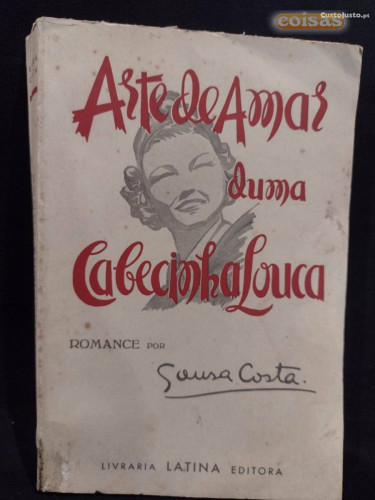 coisas
CustoJusto.pt
Arte de Amar
duma
Cabecinha Louca
ROMANCE POR
Sousa Costa.
LIVRARIA LATINA EDITORA